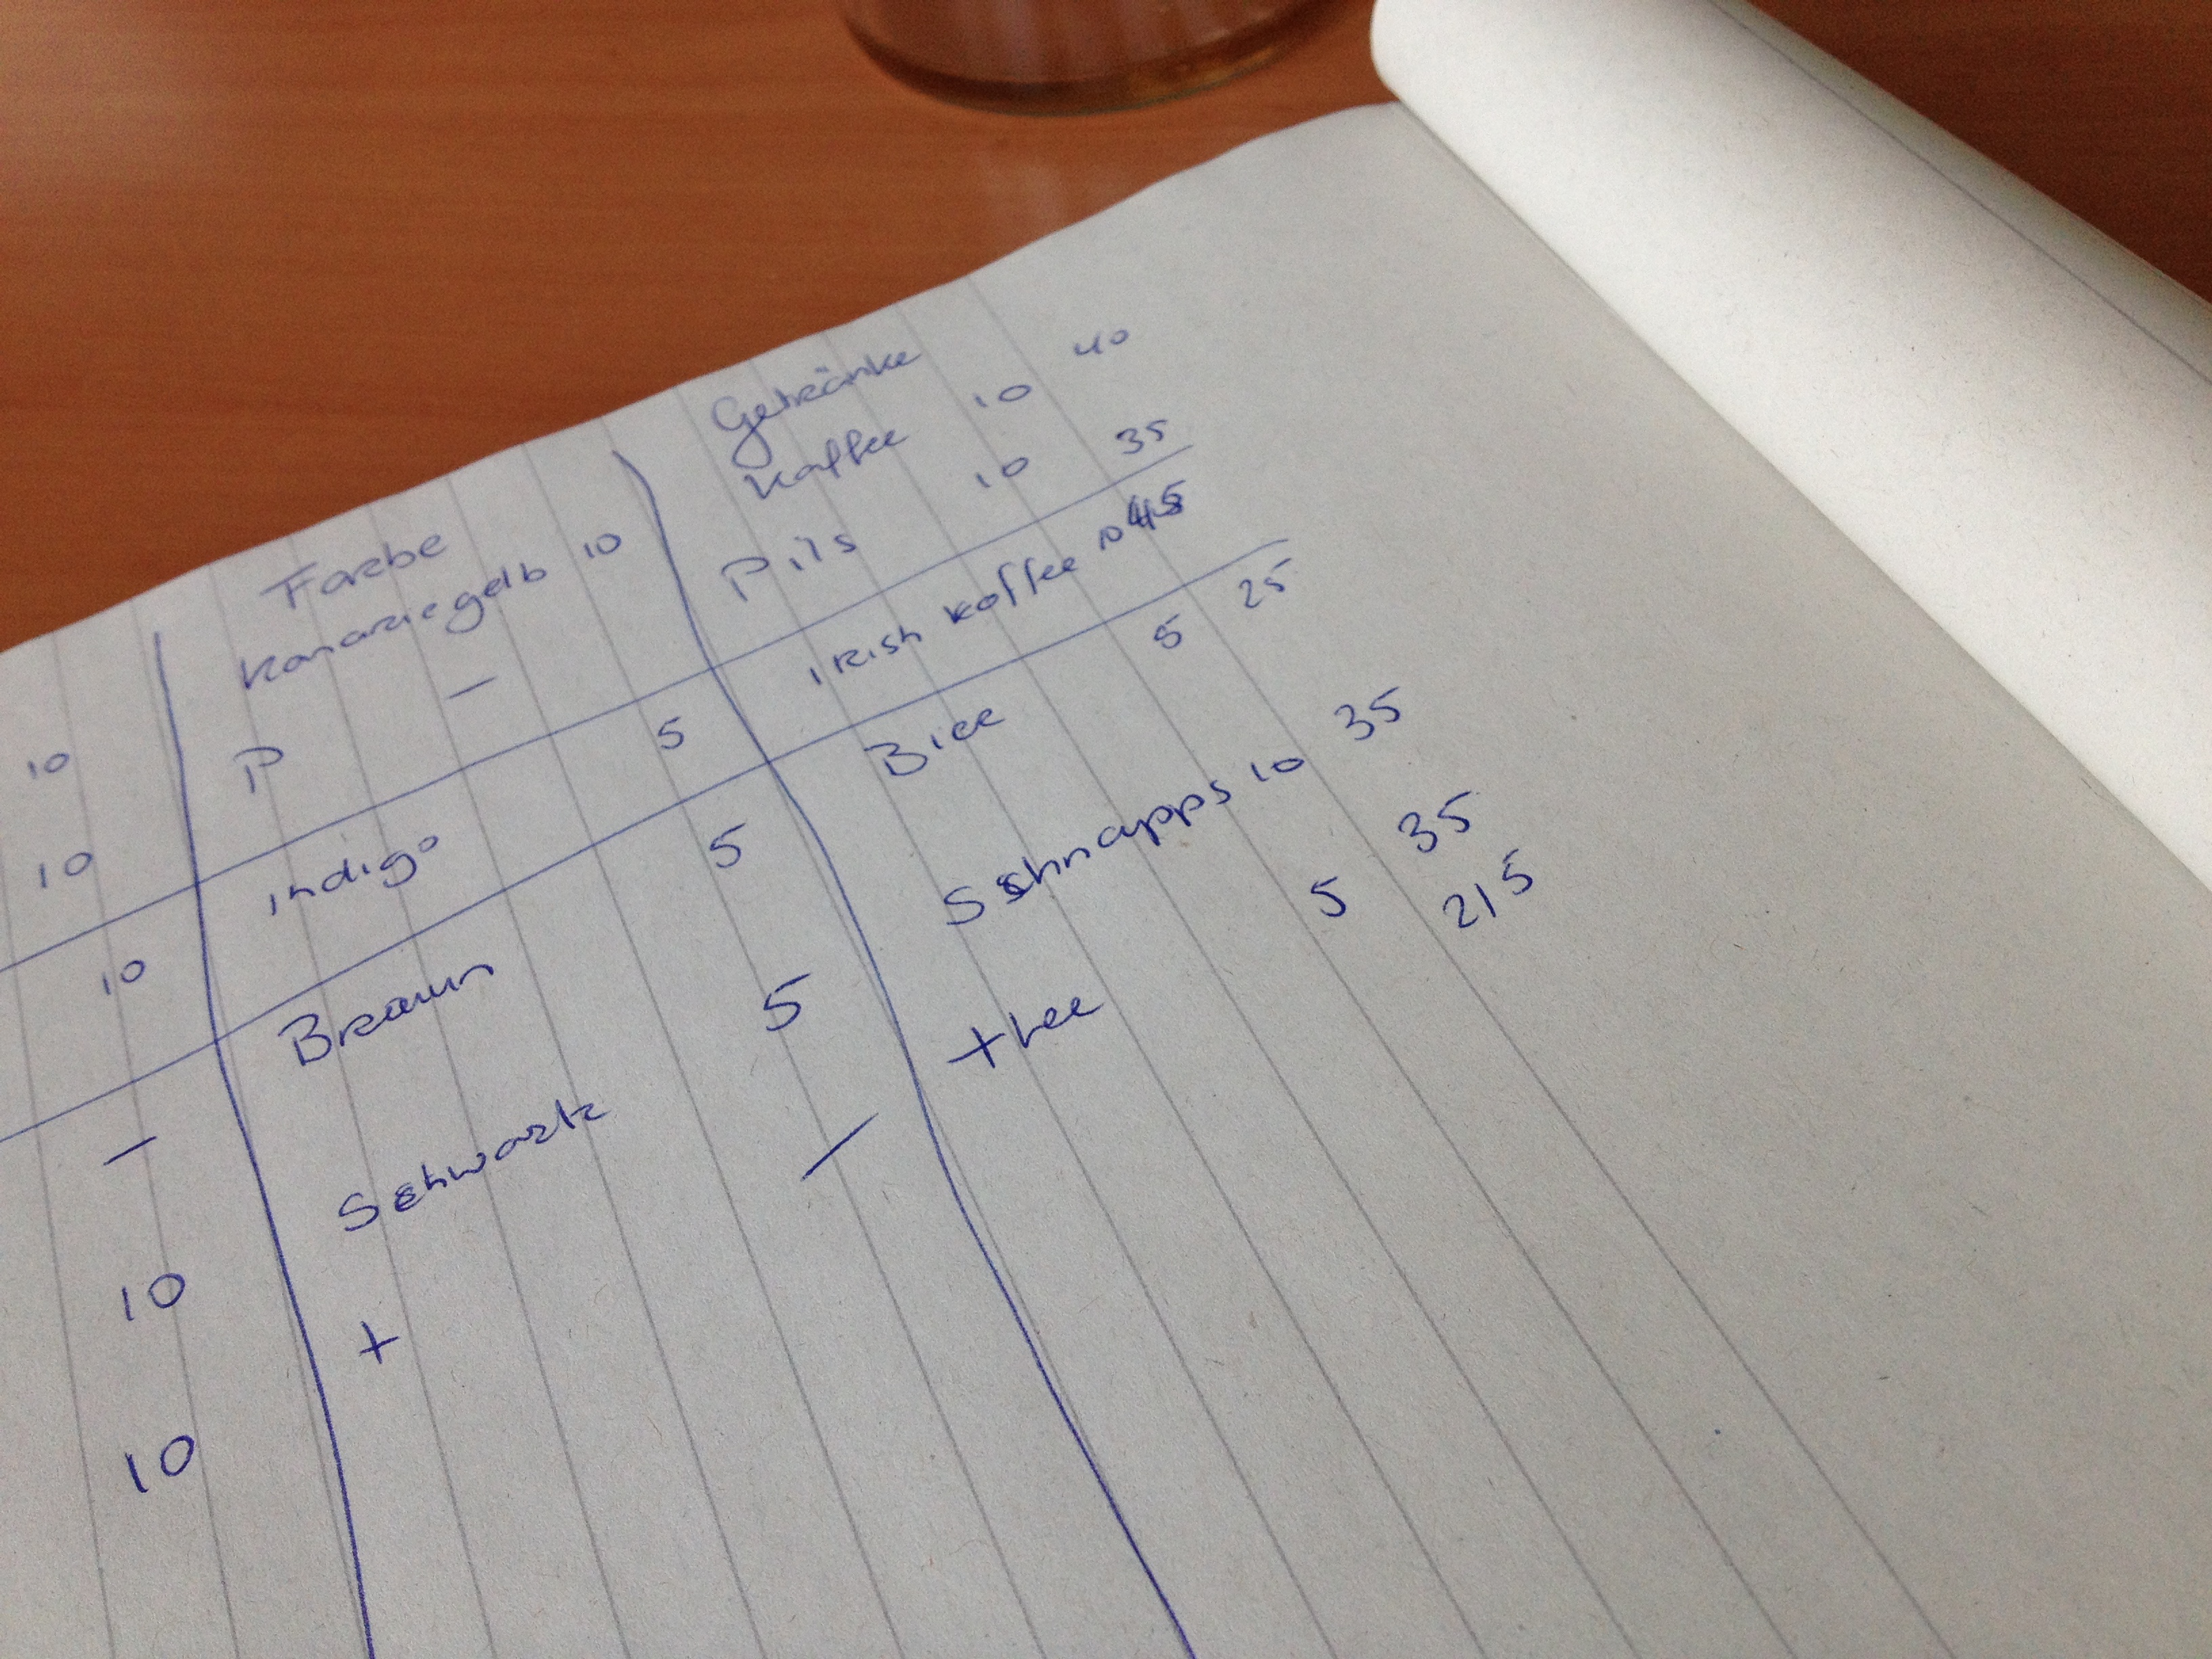 Farbe Getränke
10 Kanariegelb 10 Kaffee 10 40
10 P – Pils 10 35
10 indigo 5 irish koffee 10 45
– Braun 5 Bier 5 25
10 Schwark 5 Schnapps 10 35
10 + – thee 5 35
215